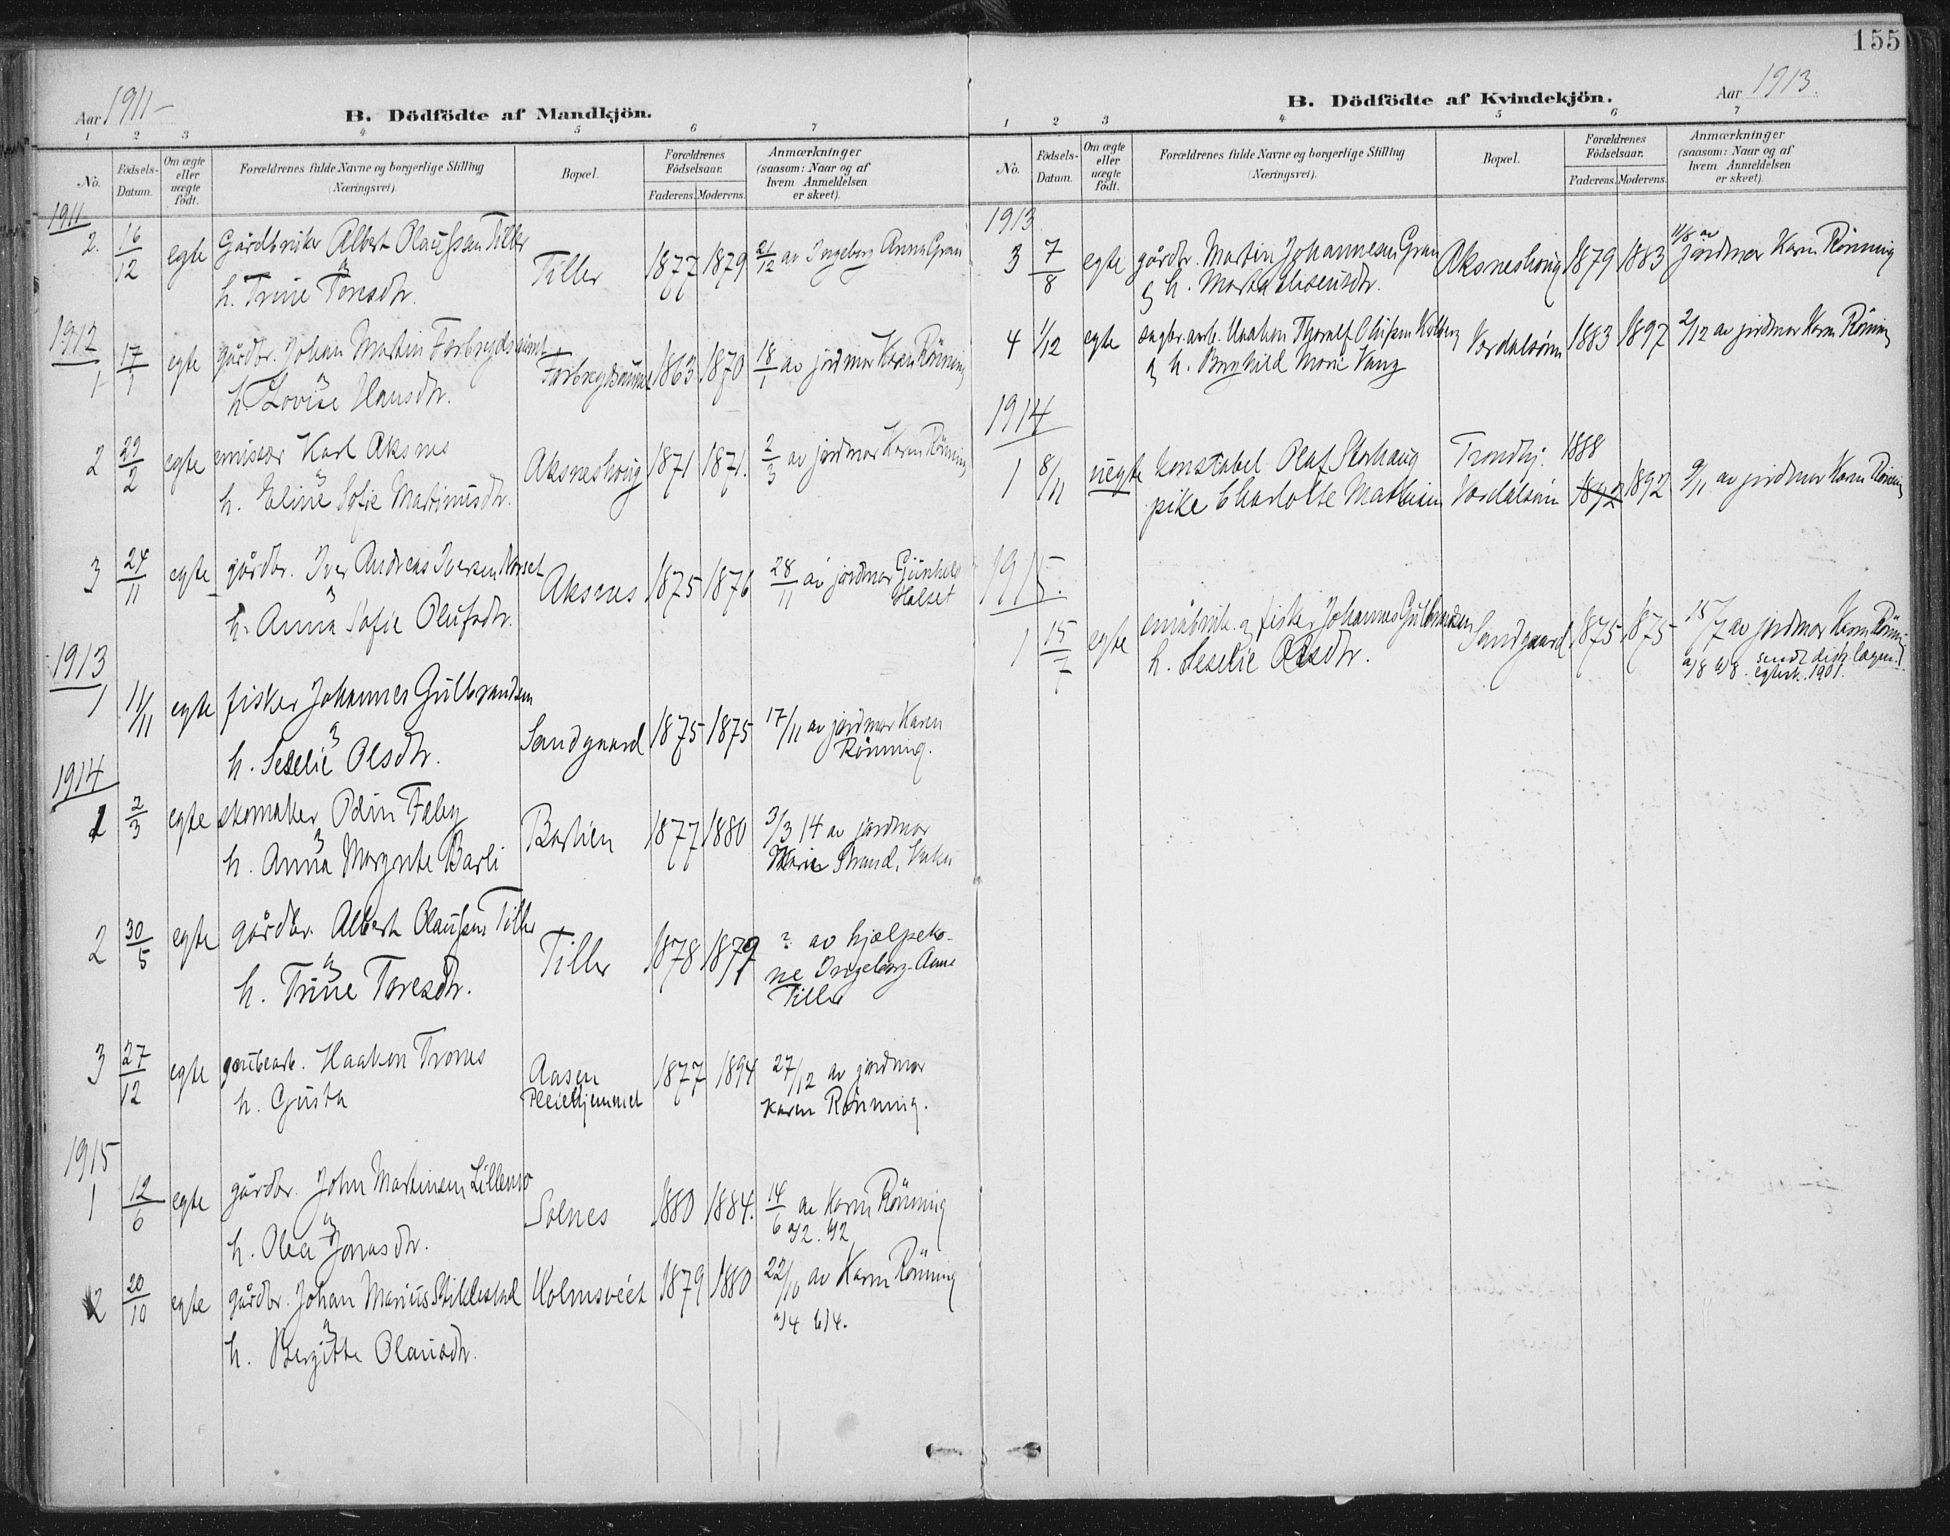 155
Aar 1911-
B. Dödfödte af Mandkjön.
1 2 3 4 5 6 7
No.
Födsels-Datum.
Om ægte eller uægte födt.
Forældrenes fulde Navne og borgerlige Stilling (Næringsvei).
Bopæl.
Forældrenes Födselsaar.
Faderens. Moderens.
Anmærkninger (saasom: Naar og af hvem Anmeldelsen er skeet).
1911
2. 16/12 egte Gårdbruker Albert Olaussen Tiller
h. Trine Toresdtr. Tiller 1877 1879 21/12 av Ingeborg Anna Gran
1912
1 17/1 egte gårdbr. Johan Martin Forbregdsaunet
h. Lovise Hansdtr. Forbregdsaunet 1863 1870 18/1 av jordmor Karen Rönning
2 29/2 egte emissær Karl Aksnes
h. Eline Sofie Martinusdtr. Aksneshoug 1871 1871. 2/3 av jordmor Karen Rönning
3 24/11 egte gårdbr. Iver Andreas Iversen
h. Anna Sofie Olufsdtr. Aksnes 1875 1876 28/11 av jordmor Gunhild Holset
1913
1 11/11 egte fisker Johannes Gulbrandsen
og
h. Selelie Olsdtr. Sandgaard 1875 1875 17/11 av jordmor Karen
Rönning.
1914
1 2/3 egte skomaker Odin Faby
og
h. Anna Margrete Barli 1877 1880 3/3 14 av jordmor
Marie Strand,
2 30/5 egte gårdbr. Albert Olaussen Tiller
og
h. Trine Toresdtr. Tiller 1878 1879 ? av hjælpeko-
ne Ingeborg Anna
Tiller
3 27/12 egte grubearb. Haakon Trones
h. Gusta Aasen
Pleiehjemmet 1877 1894 27/12 av jordmor
Karen Rönning.
1915
1 12/6 egte gårdbr. John Martinsen Lillemo
og
h. Olea Jonasdtr. Solnes 1880 1884. 14/6 av Karen Rönning
a)2. b)2
2 20/10 egte gårdbr. Johan Marius Stiklestad Holmsveet 1879 1880 22/10 av Karen Rönning
og
h. Bergitte Olausdtr. a)4 b)4.
Aar 1913.
B. Dödfödte af Kvindekjön.
1 2 3 4 5 6 7
No.
Födsels-Datum.
Om ægte eller uægte födt.
Forældrenes fulde Navne og borgerlige Stilling (Næringsvei).
Bopæl.
Forældrenes Födselsaar.
Faderens. Moderens.
Anmærkninger (saasom: Naar og af hvem Anmeldelsen er skeet).
1913
3 7/8 egte gårdbr. Martin Johannesen Gran Aksneshoug 1879 1883 11/8 av jordmor Karen Rönning
og h. Marta
4 1/12 egte sagbr. arb. Haakon Thoralf
og h. Borghild Marie Vang Verdalsören 1883 1897 2/12 av jordmor Karen Rönning
1914
1 8/11 uegte konstabel Olaf Storhaug Trondhj. 1888
pike Charlotte Mathisen Verdalsören 1892 1892 9/11 av jordmor Karen Rönning
1915.
1 15/7 egte småbruk. og fisker Johannes Gulbrandsen
h. Selelie Olsdtr. Sandgaard 1875 1875 15/7 av jordmor Karen Rönning
a)8 b)8. sendt distr. lægen.
egtesk. 1901.